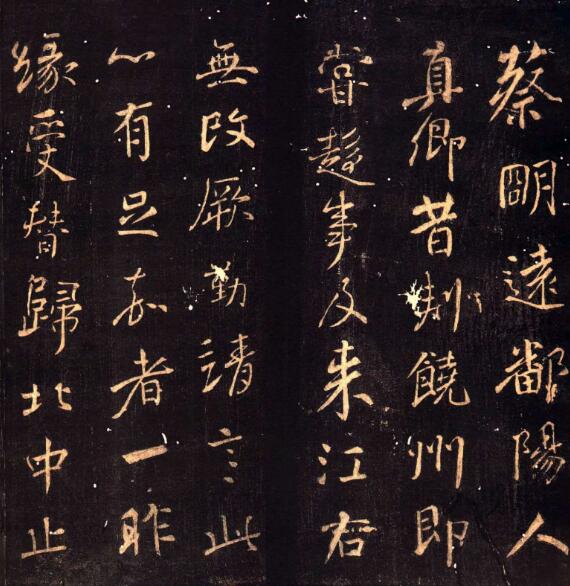 蔡明遠鄱陽人
真卿昔刾饒州即
甞趨事及来江右
無改厥勤靖言此
心有足嘉者一昨
緣受替歸北中止